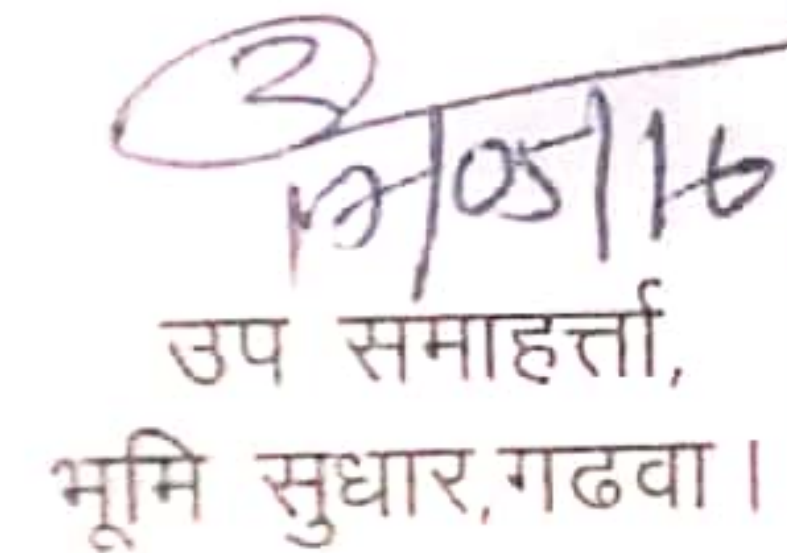 2
17/05/16
उप समाहर्त्ता,
भूमि सुधार,गढवा।